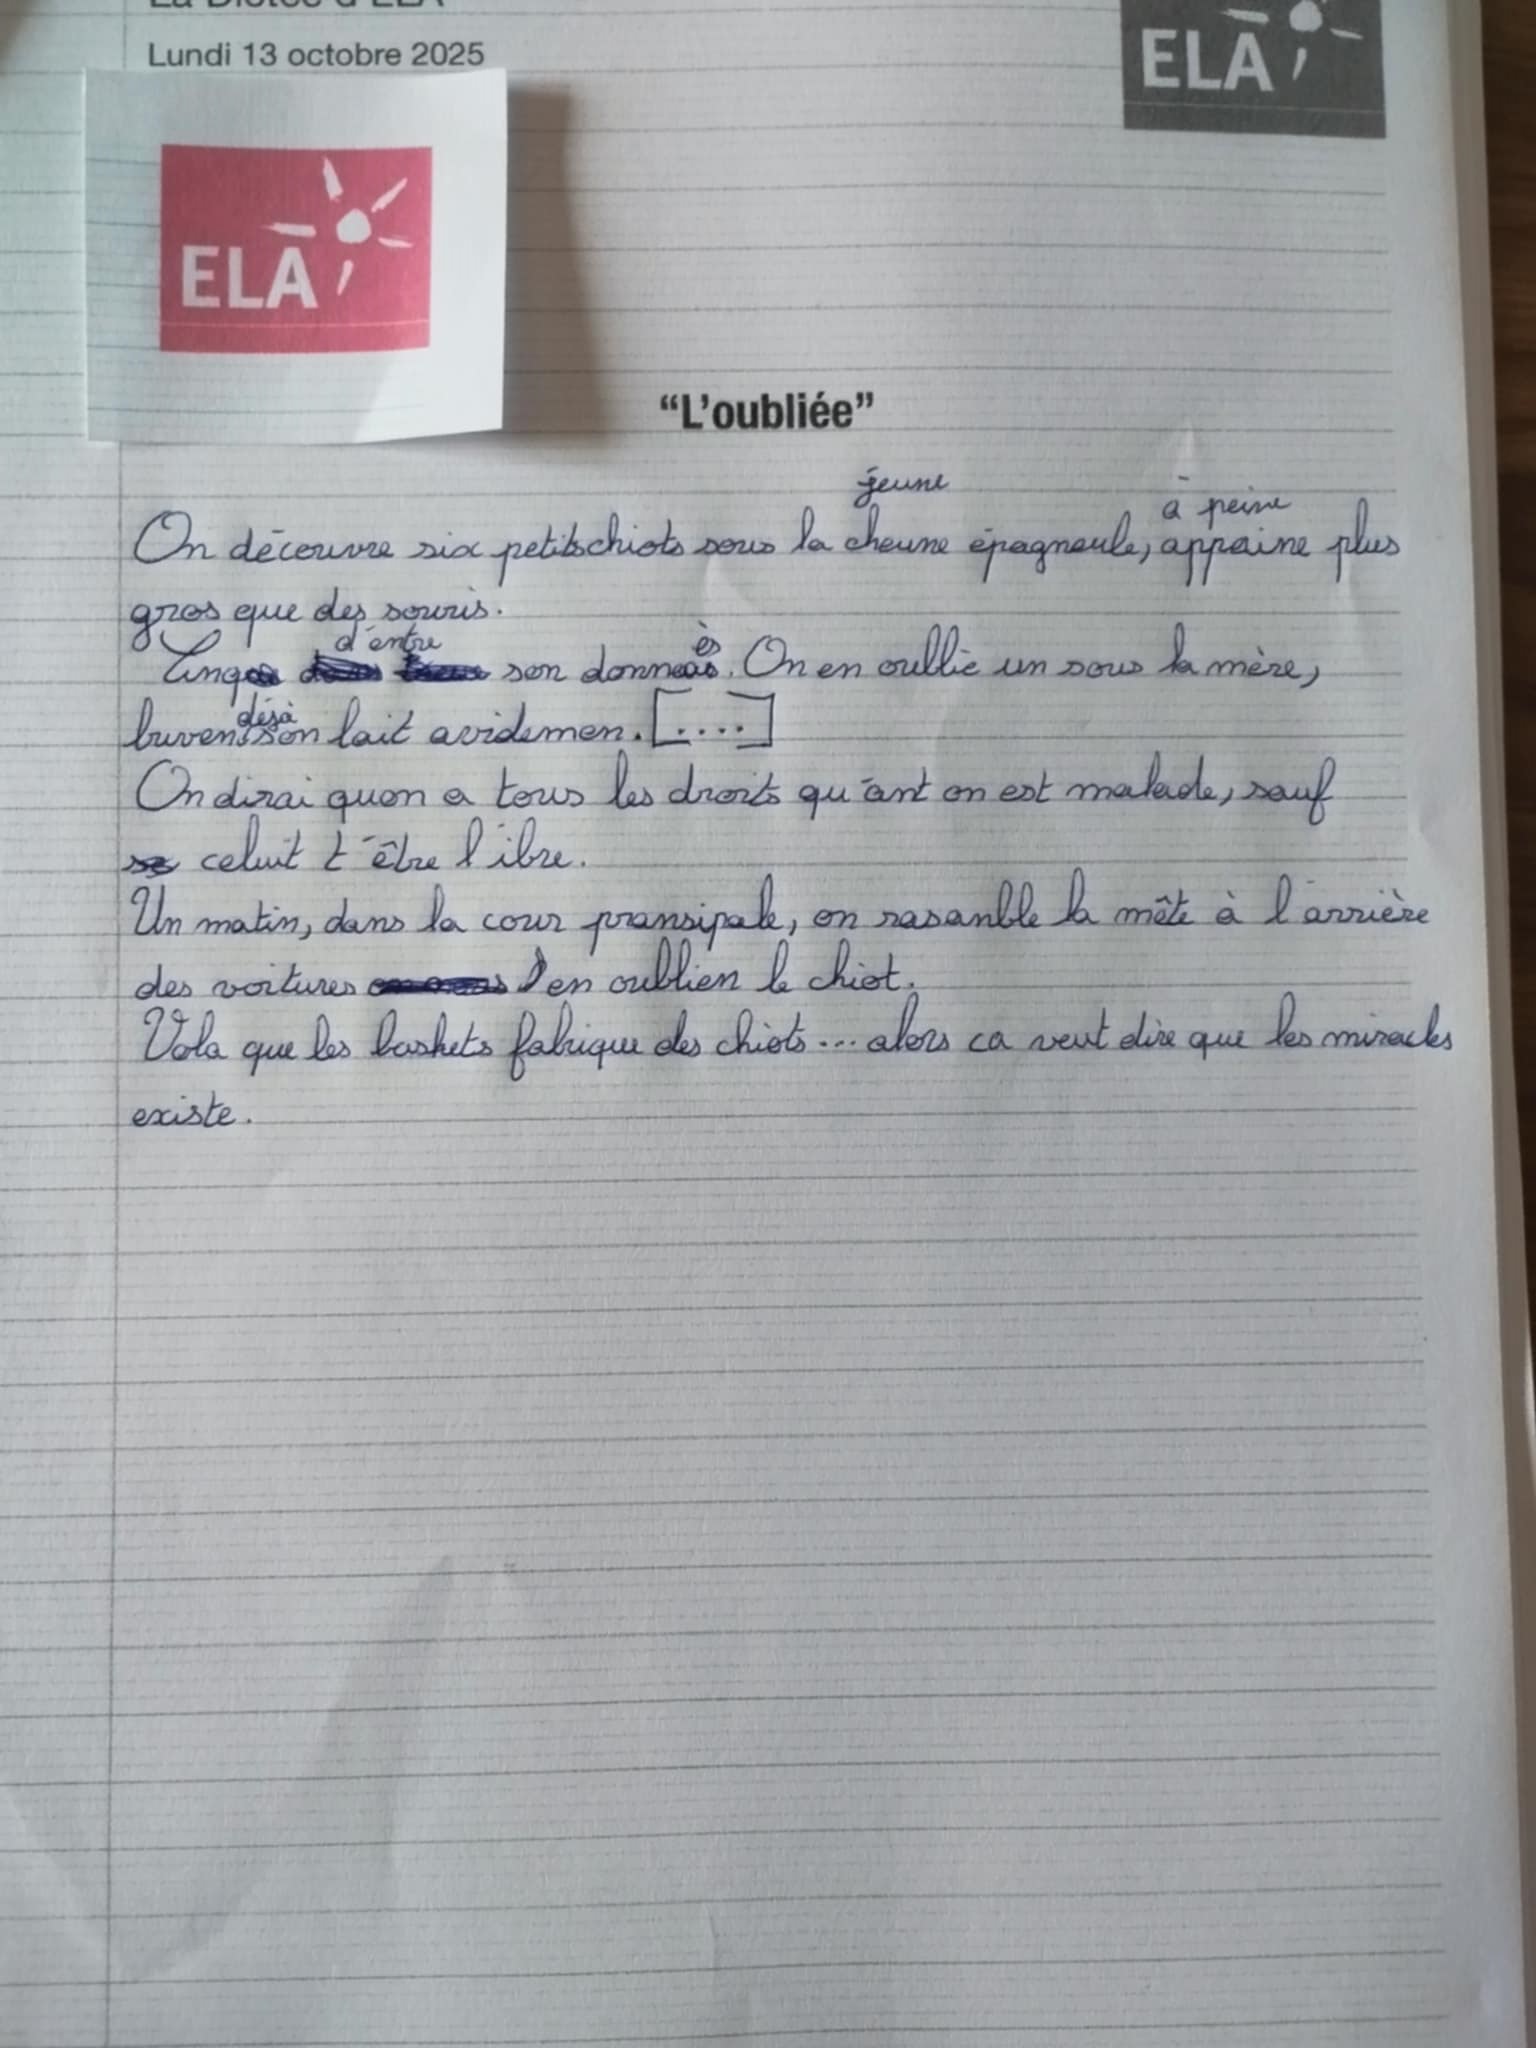 La Dictée d'ELA
Lundi 13 octobre 2025
ELA
ELA
“L’oubliée”
jeune
à peine
On découvre six petits chiots sous la cheune épagneule, appaine plus
gros que des souris.
d'entre
ès
Cinq son donnés. On en oullie un sous la mère,
déjà
buven son lait avidemen. [....]
On dirai quon a tous les droits qu'ant on est malade, sauf
celuit t'être l'ibre.
Un matin, dans la cour pransipale, on rasanble la mête à l'arrière
des voitures en oublien le chiot.
Vola que les baskets fabrique des chiots... alors ca veut dire que les miracles
existe.